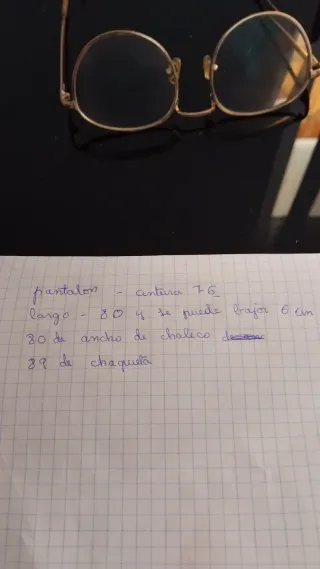 pantalon - cintura 76
largo - 80 y se puede bajar 6 cm
80 de ancho de chaleco
89 de chaqueta